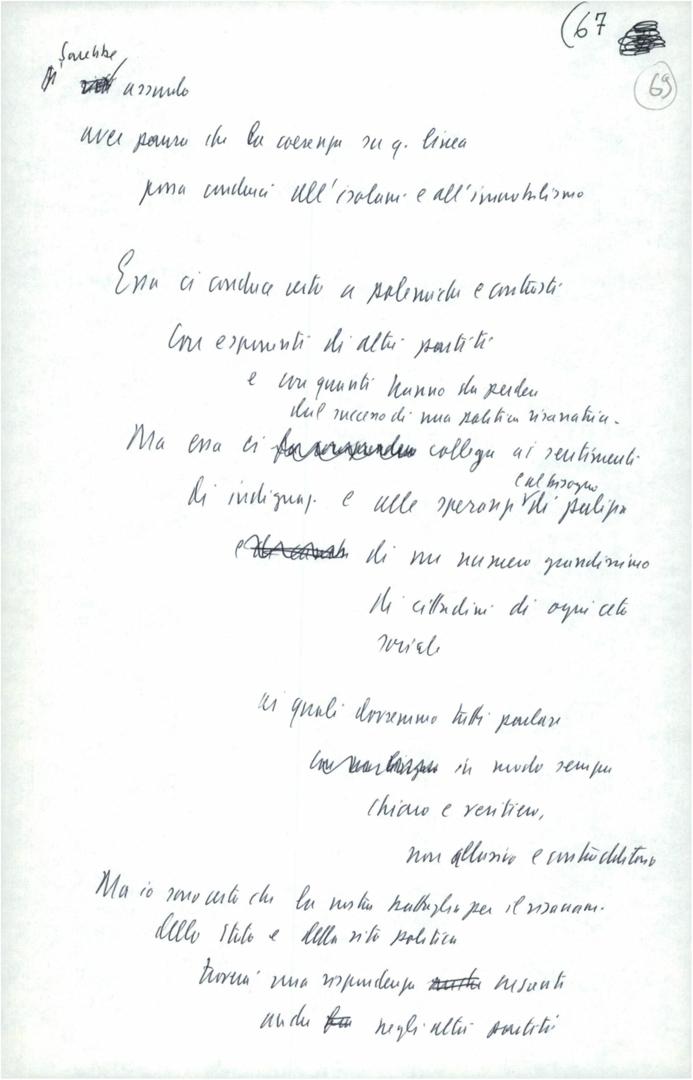 (67
69
Sarebbe
assurdo
aver paura che la coerenza su q. linea
possa condurci all'isolam. e all'immobilismo
Essa ci conduce certo a polemiche e contrasti
con esponenti di altri partiti
e con quanti hanno da perdere
dal successo di una politica risanatrice.
Ma essa ci collega ai sentimenti
e al bisogno
di indignaz. e alle speranze di pulizia
e di un numero grandissimo
di cittadini di ogni ceto
sociale
ai quali dovremmo tutti parlare
in modo sempre
chiaro e veritiero,
non allusivo e contraddittorio
Ma io sono certo che la nostra battaglia per il risanam.
dello Stato e della vita politica
troverà una rispondenza crescente
anche negli altri partiti